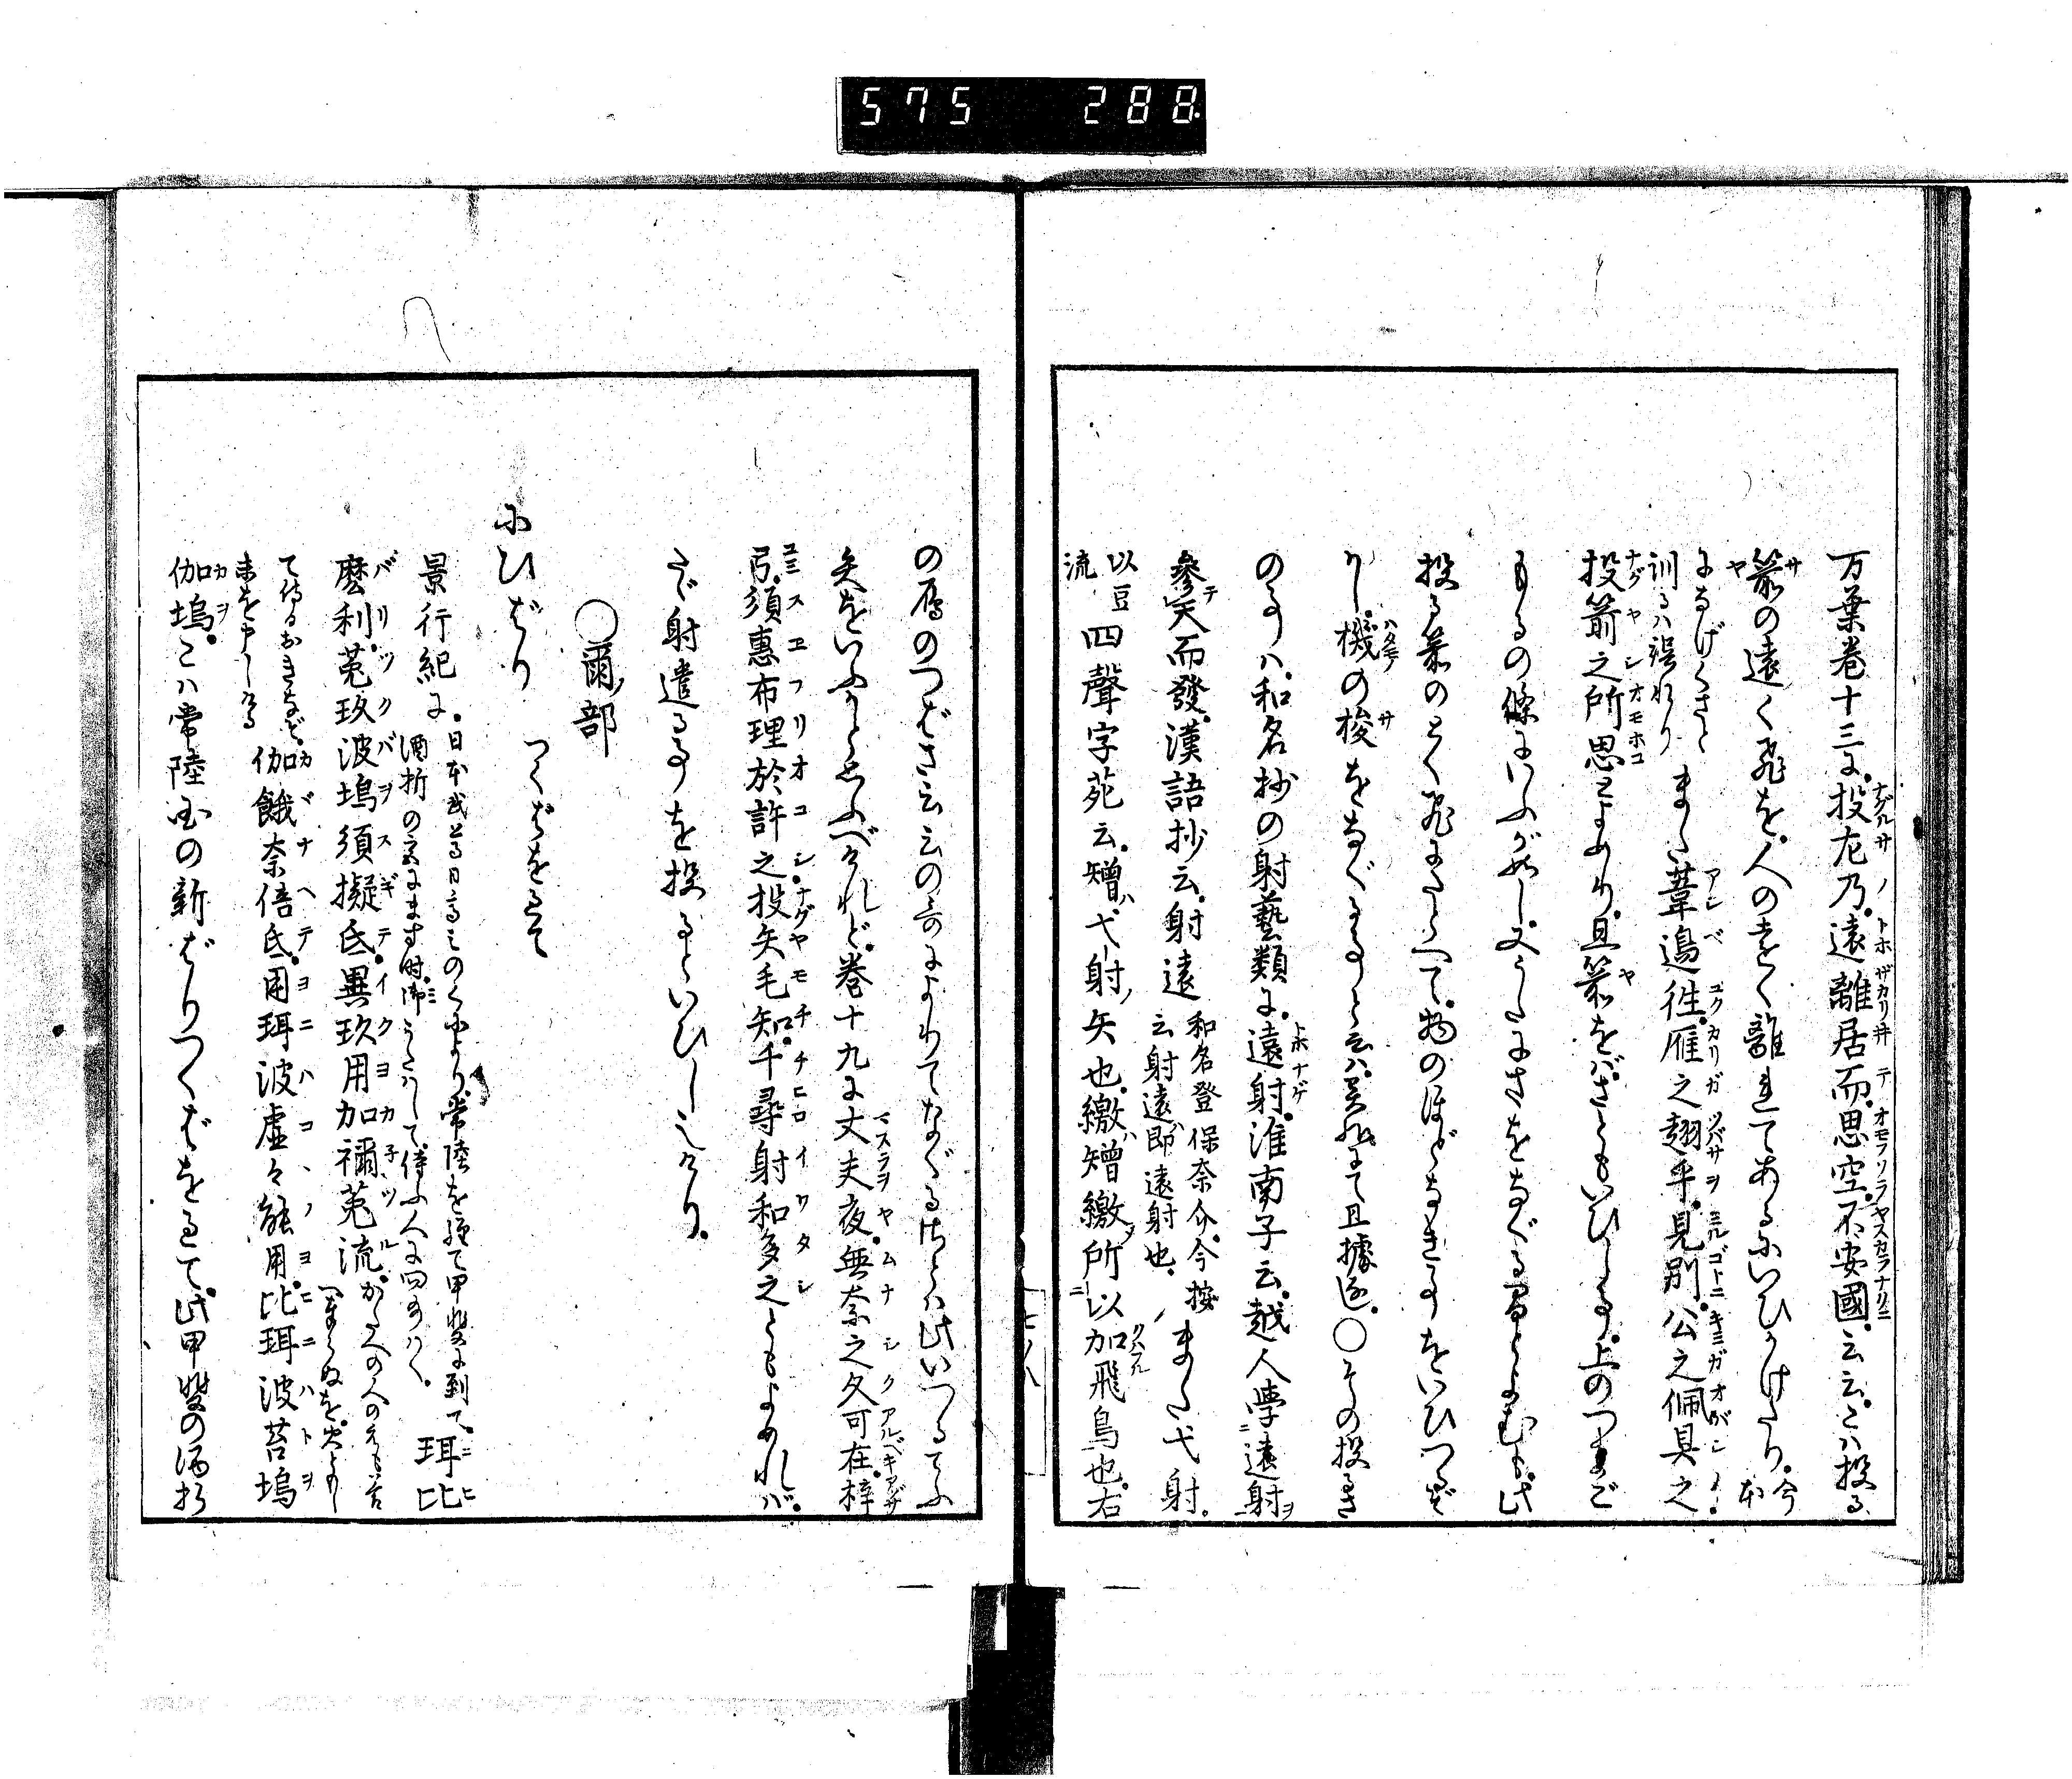 575 288
万葉巻十三に投左乃遠離居而思空不安國云云こは投る
箭の遠く飛を人の遠く離れてあるにいひかけたり今本
になげくさと訓るは誤れりまた葦邊往雁之翅乎見別公之佩具之
投箭之所思とよめり且箭をばさともいひし事上のつまご
もるの條にいふが如し又うたにさをなぐる間とよむも此
投る箭のとく飛にたとへて物のほどなき事をいひつるぞ
かし機の梭をなぐる事と云は
その投き
の事は和名抄の射藝類に遠射淮南子云越人學遠射
參天而發漢語抄云射遠和名登保奈介今按云射遠即遠射也また弋射
以豆流四聲字苑云矰弋射矢也繳矰繳所以加飛鳥也右
の鴈のつばさ云云の哥によりてなぐるさとは此いつるてふ
矢をいふかとも思ふべけれど巻十九に丈夫夜無奈之久可在梓
弓須惠布理於許之投矢毛知千尋射和多之ともよめれば
たゞ射遣る事を投るといひしことなり
〇爾ノ部
にひばり つくばをすぎて
景行紀に日本武尊日高みのくにより常陸を經て甲斐に到て酒折の宮にます時御うたはして侍ふ人に問給はく珥比
麼利菟玖波塢須擬氐異玖用加禰菟流
て侍るおきなぞ末を申しける伽餓奈倍氐用珥波虚々能用比珥波苔塢
伽塢こは常陸國の新ばりつくばをすぎて此甲斐の酒折